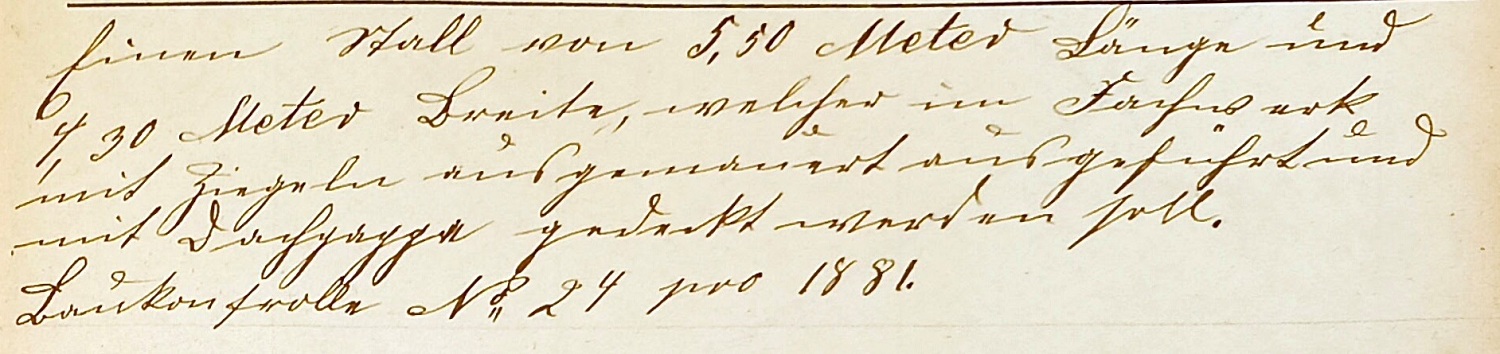 Einen Stall von 5,50 Meter Länge und
4,30 Meter Breite, welcher im Fachwerk
mit Ziegeln ausgemauert ausgeführt und
mit Dachpappe gedeckt werden soll.
Baukontrolle No. 24 pro 1881.